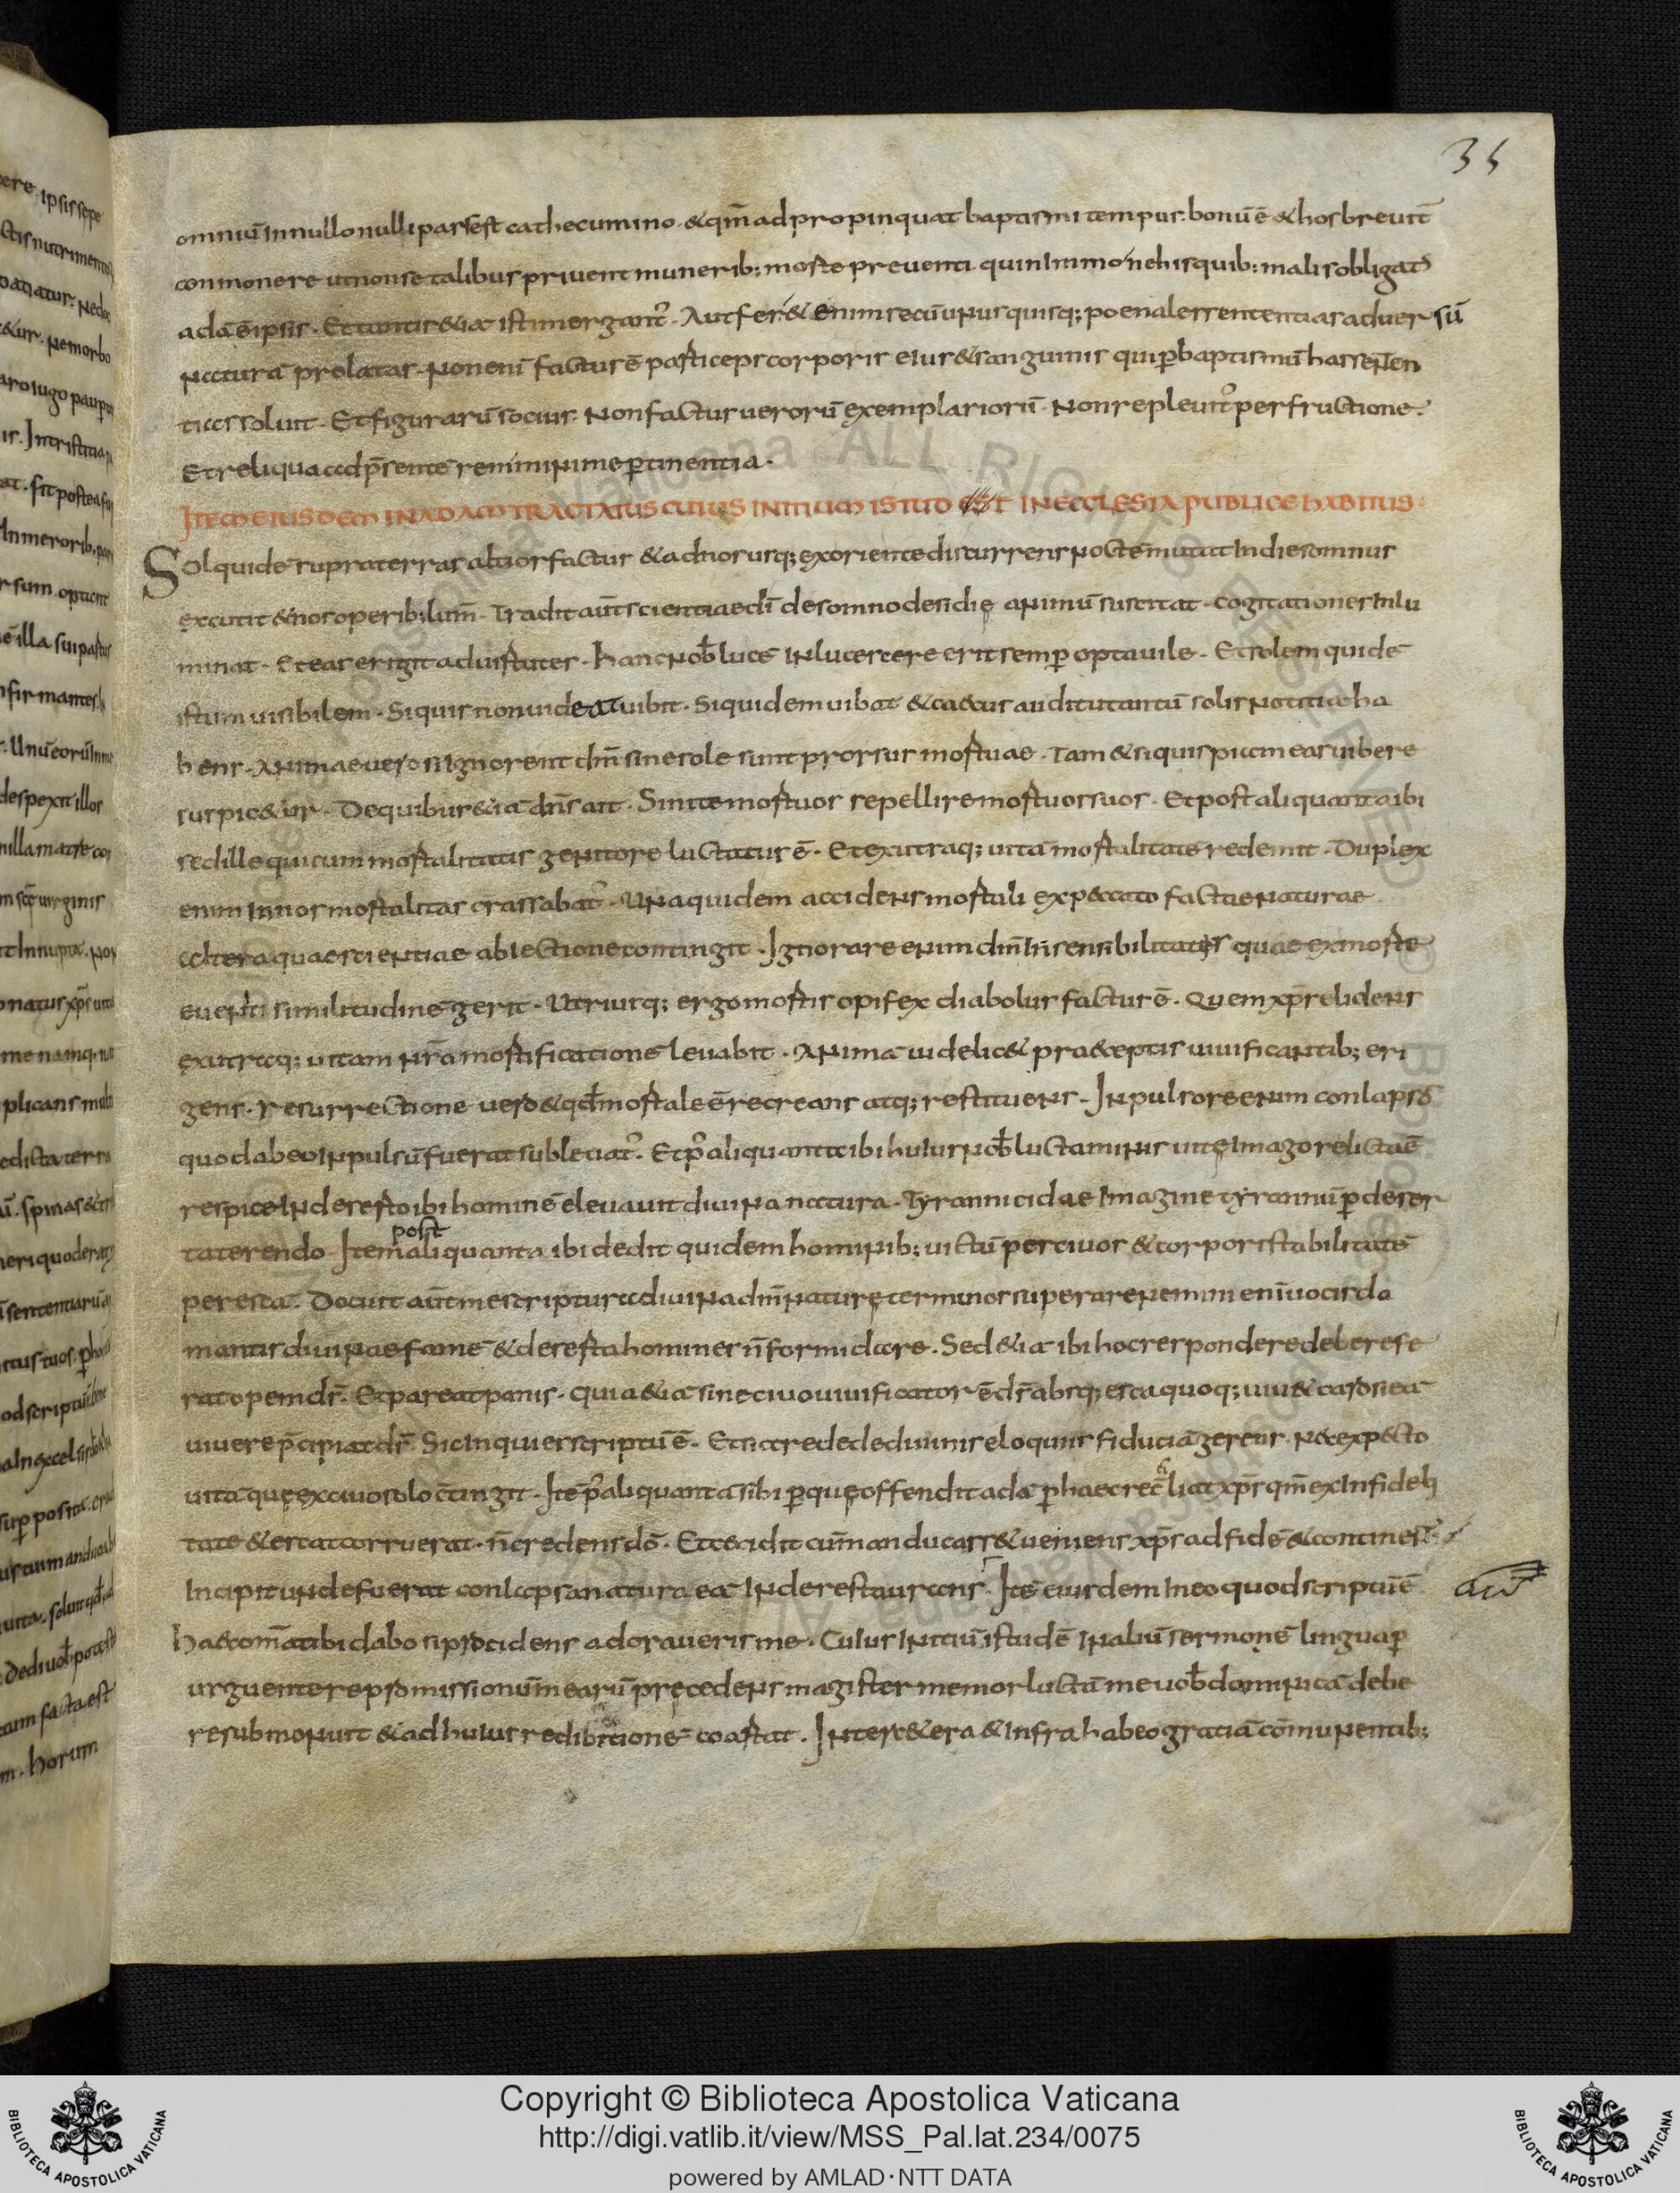 35
omniū In nullo nulli pars est cathecumino · &qm̄ ad propinquat baptismi tempus · bonū ē & hos breuit̄
conmonere ut non se talibus priuent munerib; morte preuenti quin Immo neh is quib; malis obligat
adā ē ipsis · Et tantis &iā isti mergant̄ · Aut fer& enim secū unus quisq; poenales sententias aduersū
natura prolatas · Non enī factus ē particeps corporis eius & sanguinis qui p baptismū has senten
tias soluit · Et figurarū socius · Non factus uerorū exemplariorū · Non repleuit per fructione ·
Et reliqua ad p̄sente rem minime ptinentia ·
ITEM EIUSDEM IN ADAM TRACTATUS CUIUS INITIUM ISTUD EST IN ECCLESIA PUBLICE HABITUS ·
Sol quidē supra terras altior factus & ad nos usq; ex oriente discurrens noctē mutat In diē somnus
excutit & nos operib; lum̄ · Tradit aūt scientiae dī de somno desidię animū suscitat · cogitationes Inlu
minat · Et eas erigit ad uirtutes · hanc nob̄ lucē Inlucescere erit semp optauile · Et solem quidē
istum uisibilem · Si quis non uideat uibit · Si quidem uibat & caecus auditu tantū solis notitia ha
bens · Animae uero si Ignorent dm̄ sine sole sunt prorsus mortuae · Tam & si quispiam eas uibere
suspic&ur · De quibus &iā dn̄s ait · Sinite mortuos repellire mortuos suos · Et post aliquanta ibi
sed ille qui cum mortalitatis genitore luctatus ē · Et ex utraq; uitā mortalitate redemit · Duplex
enim In nos mortalitas crassabat̄ · Una quidem accidens mortali ex peccato factae naturae
altera quae scientiae abiectione contingit · Ignorare enim dm̄ In sensibilitatis quae ex morte
euenti similitudinē gerit · Utriusq; ergo mortis opifex diabolus factus ē · Quem xp̄s elidens
ex utraq; uitam nr̄ā mortificationē leuabit · Animā uidelic& praeceptis uiuificantib; eri
gens · resurrectione uero & qd̄ mortale ē recreans atq; restituens · Inpulsore enim conlapso
quod ab eo Inpulsū fuerat subleuat̄ · Et p̄ aliquanta ibi huius nob̄ luctaminis uitę Imago relicta ē
respice Inde resto ibi hominē eleuauit diuina natura · Tyrannicidae Imagine tyrannū p deser
ta terendo · Item post aliquanta ibi dedit quidem hominib; uictū per ciuos & corporis tabilitatē
per esca · Docuit aūt me scriptura diuina dm̄ naturę terminos superare nemini enī uocis do
mantis diuinae famē & deresta homines n̄ formidare · Sed &iā ibi hoc respondere deberese
rato pem ds̄ · Et pareat panis · quia &iā sine ciuo uiuificator ē ds̄ absq; esca quoq; uiu& caro si eā
uiuere p̄cipiat ds̄ Sic Inquies scriptū ē · Et si crede de diuinis eloquiis fiduciā gereris · N& expecto
uitā quę ex ciuo solo c̄tingit · Itē p̄ aliquanta sibi p que offendit adā p haec rec̄liat xp̄s qm̄ ex Infideli
tate & esca corruerat · n̄ credens dō · Et cecidit cū manducass& ueniens xp̄s ad fidē & continet̄
Incipit unde fuerat conlapsa natura eā Inde restaurans · Itē eiusdem In eo quod scriptū ē
haec om̄a tibi dabo si procidens adoraueris me · Cuius Initiū istud ē In aliū sermonē lingua p
urguente repromissionū mearū pręcedens magister memor luctā me uob̄ dominicā debe
re submonuit & ad huius redibitionē coartat · Inter c&era & Infra habeo gratiā cōmunentib;
Copyright © Biblioteca Apostolica Vaticana
http://digi.vatlib.it/view/MSS_Pal.lat.234/0075
powered by AMLAD·NTT DATA
BIBLIOTECA APOSTOLICA VATICANA
BIBLIOTECA APOSTOLICA VATICANA